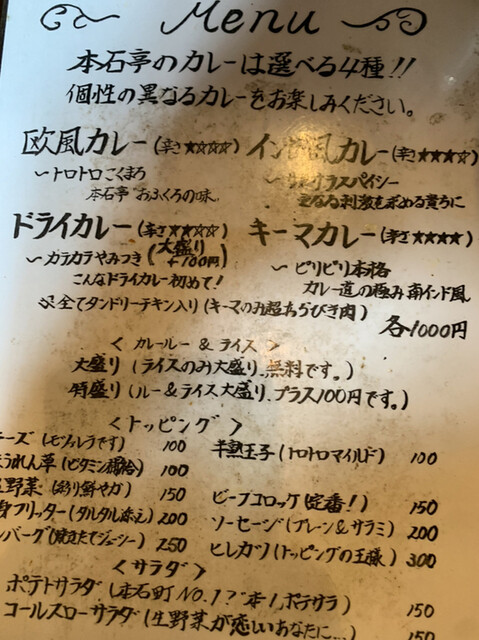 Menu
本石亭のカレーは選べる4種!!
個性の異なるカレーをお楽しみください。
欧風カレー(辛さ★☆☆☆) インド風カレー(辛さ★★★☆)
～トロトロこくまろ
本石亭 おふくろの味
スパイシー
更なる刺激を求める貴方に
ドライカレー(辛さ★★☆☆) キーマカレー(辛さ★★★★)
～カラカラやみつき (大盛り +100円)
こんなドライカレー初めて!
～ピリピリ本格
カレー道の極み 南インド風
※全てタンドリーチキン入り(キーマのみ超あらびき肉)
各1000円
<カレールー&ライス>
大盛り(ライスのみ大盛り、無料です。)
特盛り(ルー&ライス大盛り、プラス100円です。)
<トッピング>
ーズ(モツァレラです) 100 半熟玉子(トロトロマイルド) 100
うれん草(ビタミン補給) 100
野菜(彩り鮮やか) 150 ビーフコロッケ(定番!) 150
フリッター(タルタル添え) 200 ソーセージ(プレーン&サラミ) 200
ンバーグ(焼きたてジューシー) 250 ヒレカツ(トッピングの王様) 300
<サラダ>
ポテトサラダ(本石町NO.1?"本1"ポテサラ) 150
コールスローサラダ(生野菜が恋しいあなたに...) 150